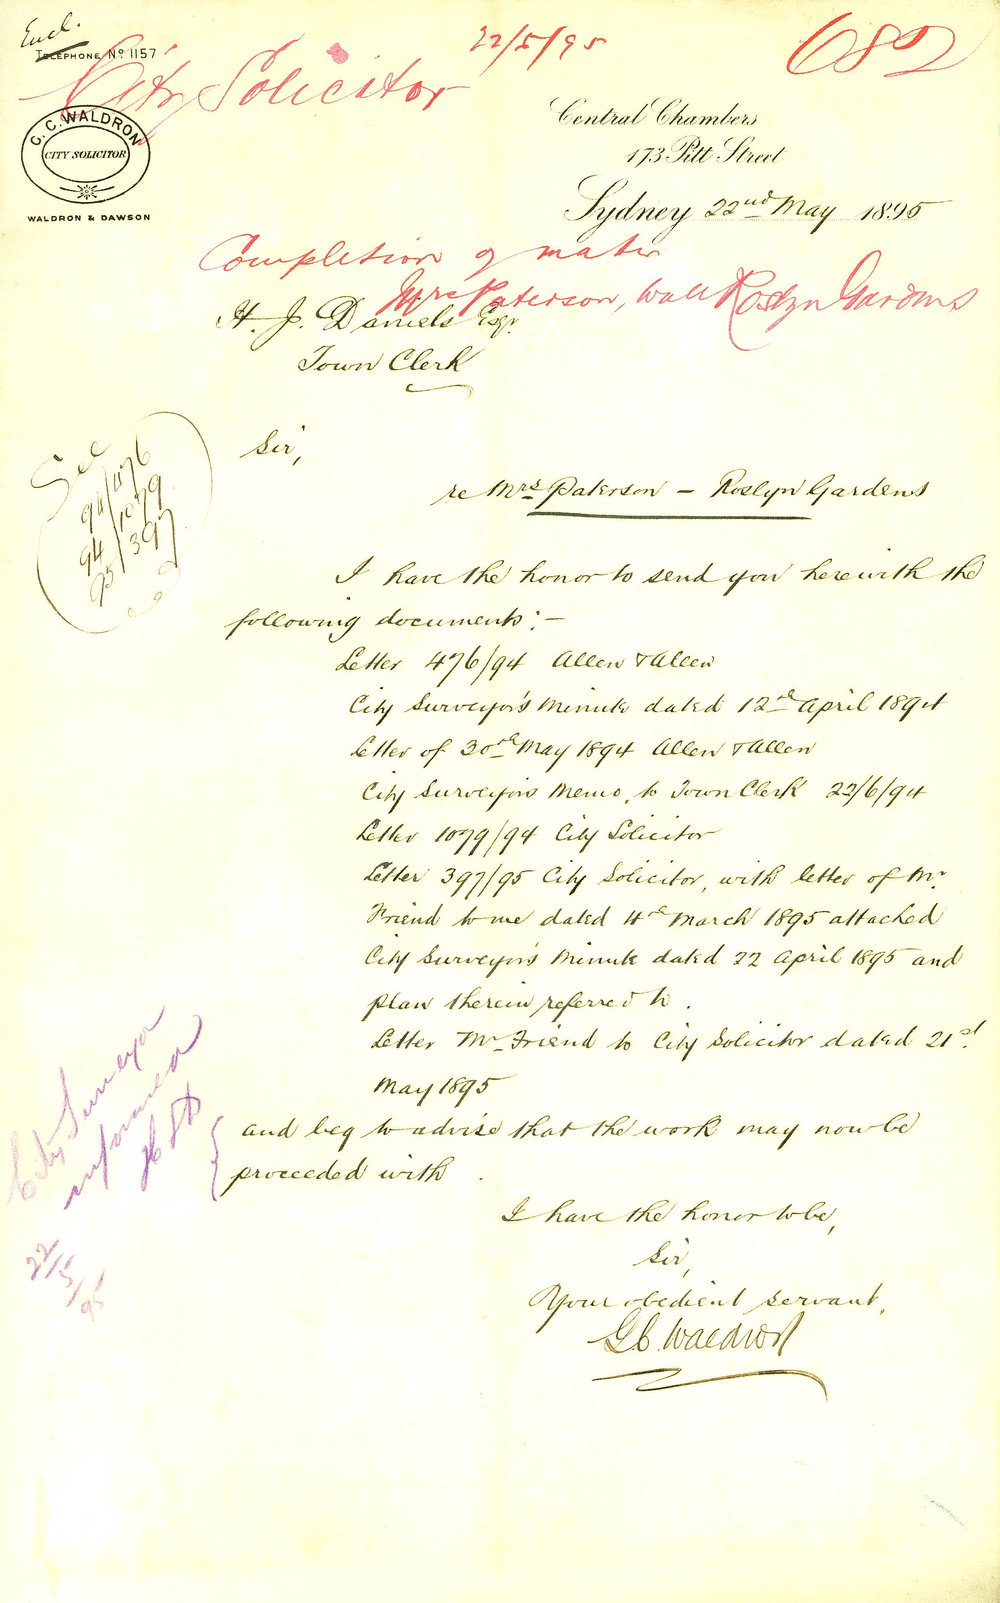 Encl.
TELEPHONE No 1157
22/5/95
682
City Solicitor
C. C. WALDRON
CITY SOLICITOR
WALDRON & DAWSON
Central Chambers
173 Pitt Street
Sydney 22nd May 1895
Completion of matter
Mrs Paterson, wall Roslyn Gardens
H. J. Daniels Esqr.
Town Clerk
See
94/476
94/1079
95/397
Sir,
re Mrs Paterson – Roslyn Gardens
I have the honor to send you herewith the
following documents:–
Letter 476/94 Allen & Allen
City Surveyor's Minute dated 12th April 1894
Letter of 30th May 1894 Allen & Allen
City Surveyors Memo. to Town Clerk 22/6/94
Letter 1079/94 City Solicitor
Letter 397/95 City Solicitor, with letter of Mr
Friend to me dated 4th March 1895 attached
City Surveyor's Minute dated 22 April 1895 and
plan therein referred to.
Letter Mr Friend to City Solicitor dated 21st
May 1895
and beg to advise that the work may now be
proceeded with.
City Surveyor
informed
HJD
22/5/95
I have the honor to be,
Sir,
Your obedient servant,
G C Waldron